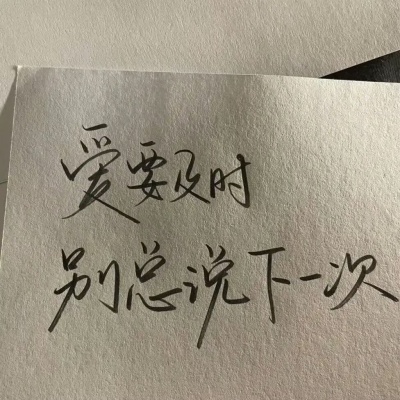 爱要及时
别总说下一次